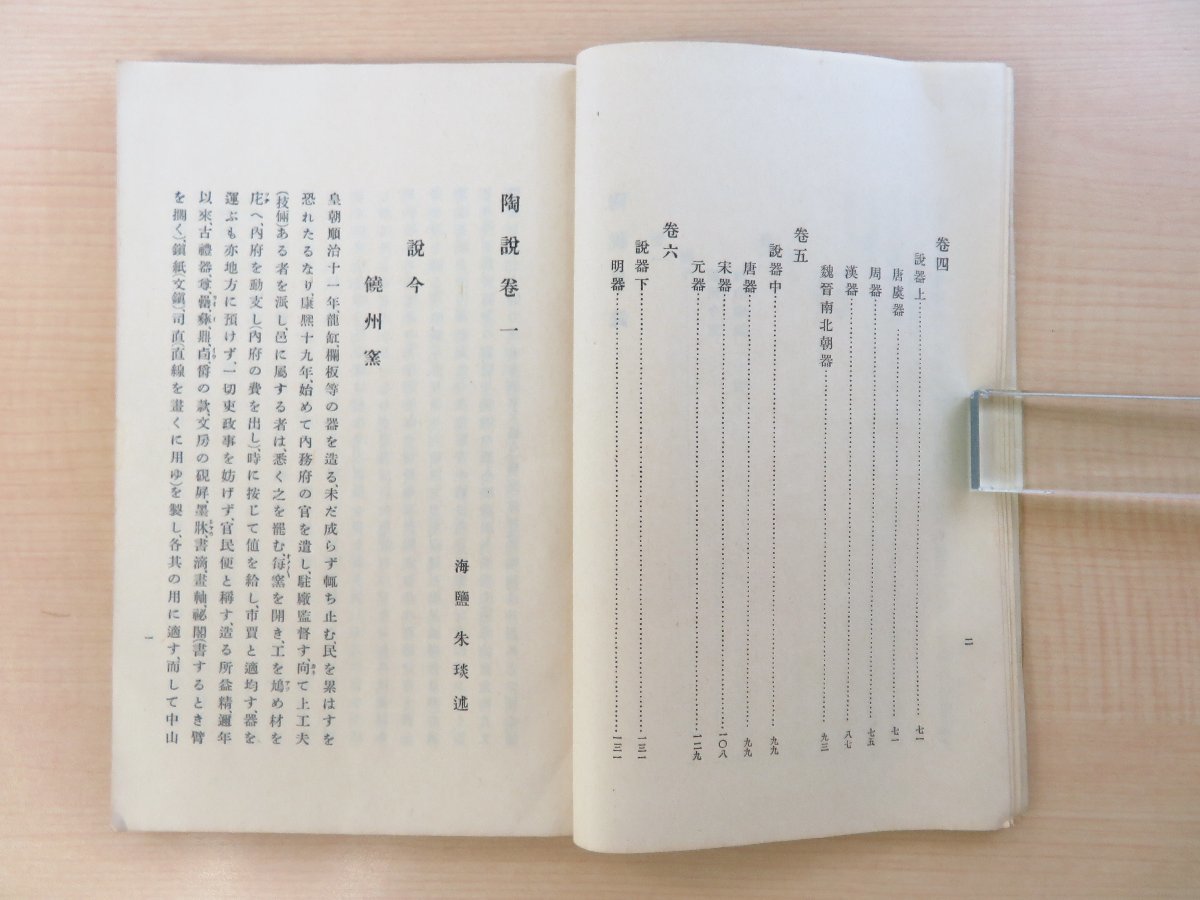 卷四
說器上……七一
唐虞器……七一
周器……七五
漢器……八七
魏晉南北朝器……九三
卷五
說器中……九九
唐器……九九
宋器……一〇八
元器……一二九
卷六
說器下……一三一
明器……一三一
二
陶說卷一
海鹽 朱琰述
說今
饒州窯
皇朝順治十一年、龍缸、欄板等の器を造る、未だ成らず輒ち止む、民を累はすを
恐れたるなり、康熙十九年、始めて內務府の官を遣し、駐廠監督す、向て上工夫
(技倆)ある者を派し、邑に屬する者は、悉く之を罷む、每窯を開き、工を鳩め材を
庀へ、內府を動支し(內府の費を出し)、時に按じて値を給し、市賈と適均す、器を
運ぶも亦地方に預けず、一切吏政事を妨げず、官民便と稱す、造る所益精、邇年
以來、古禮器、尊罍彝鼎、卣爵の款、文房の硯屏墨牀、書滴畫軸、祕閣(書するとき臂
を擱く)、鎭紙(文鎭)司直(直線を畫くに用ゆ)を製し、各其の用に適す、而して中山
一